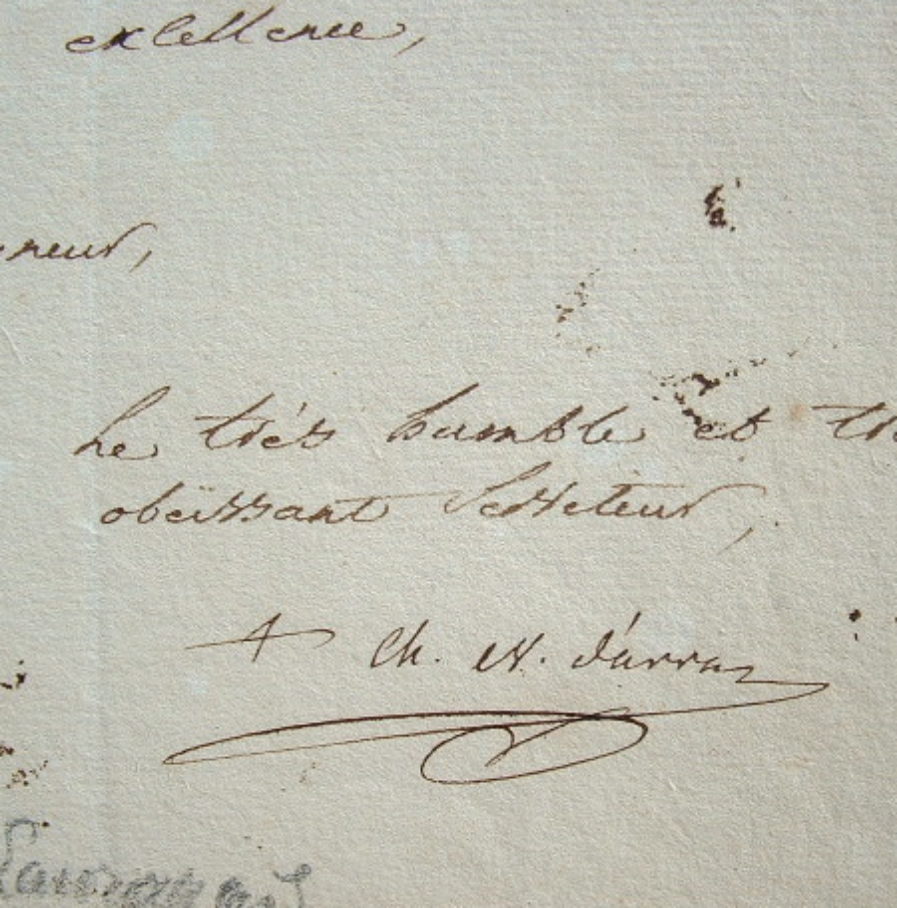 exlellence,
gneur,
Le très humble et trè
obéissant Serviteur,
+ Ch. ev. d'arras